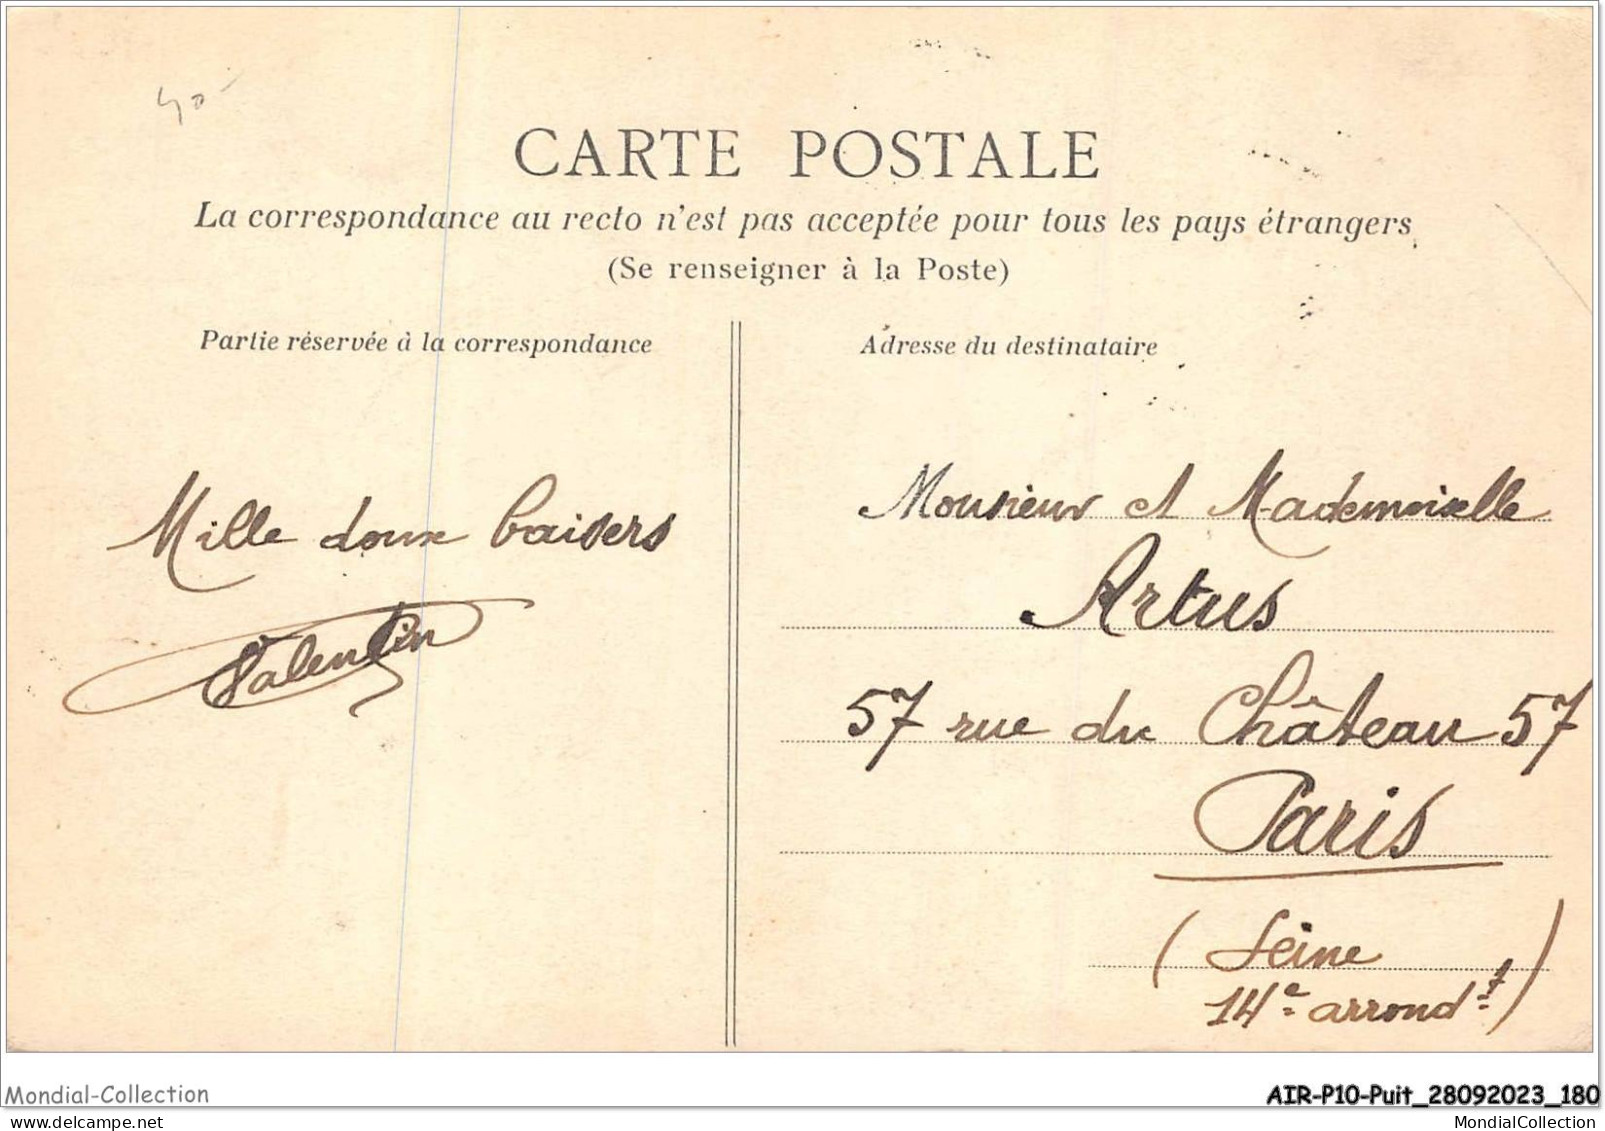 40-
CARTE POSTALE
La correspondance au recto n'est pas acceptée pour tous les pays étrangers
(Se renseigner à la Poste)
Partie réservée à la correspondance
Adresse du destinataire
Mille doux baisers
Valentin
Monsieur et Mademoiselle
Artus
57 rue du Château 57
Paris
(Seine
14e arrondt)
Mondial-Collection
AIR-P10-Puit_28092023_180
delcampe.net
MondialCollection